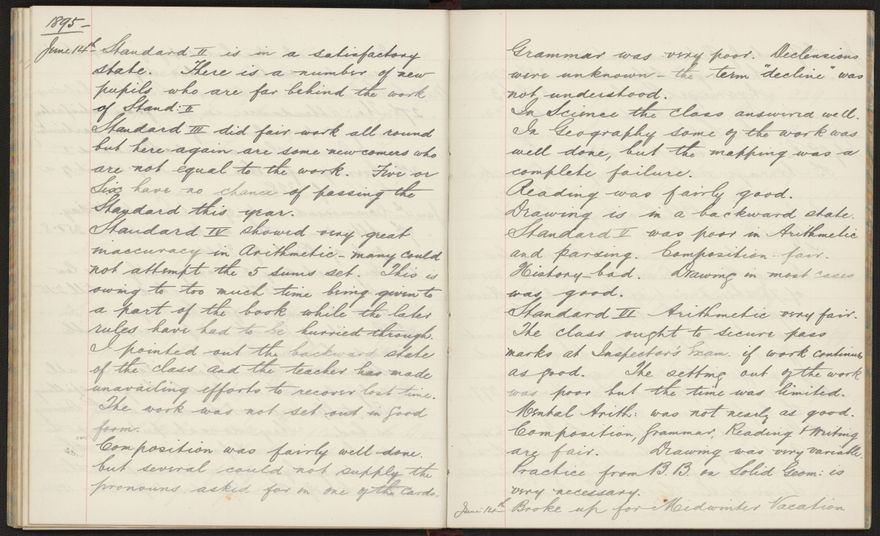 1895-
June 14th- Standard II is in a satisfactory
state. There is a number of new
pupils who are far behind the work
of Stand: II
Standard III did fair work all round
but here again are some newcomers who
are not equal to the work. Five or
Six have no chance of passing the
Standard this year.
Standard IV showed very great
inaccuracy in Arithmetic - many could
not attempt the 5 sums set. This is
owing to too much time being given to
a part of the book while the later
rules have had to be hurried through.
I pointed out the backward state
of the class and the teacher has made
unavailing efforts to recover lost time.
The work was not set out in good
form.
Composition was fairly well done.
but several could not supply the
pronouns asked for in one of the cards.
Grammar was very poor. Declensions
were unknown - the term "decline" was
not understood.
In Science the class answered well.
In Geography some of the work was
well done, but the mapping was a
complete failure.
Reading was fairly good.
Drawing is in a backward state.
Standard V was poor in Arithmetic
and parsing. Composition fair.
History - bad. Drawing in most cases
was good.
Standard VI Arithmetic very fair.
The class ought to secure pass
marks at Inspector's Exam. if work continues
as good. The setting out of the work
was poor but the time was limited.
Mental Arith: was not nearly as good.
Composition, Grammar, Reading & Writing
are fair. Drawing was very variable.
Practice from B.B. on Solid Geom: is
very necessary.
June 14th Broke up for Midwinter Vacation